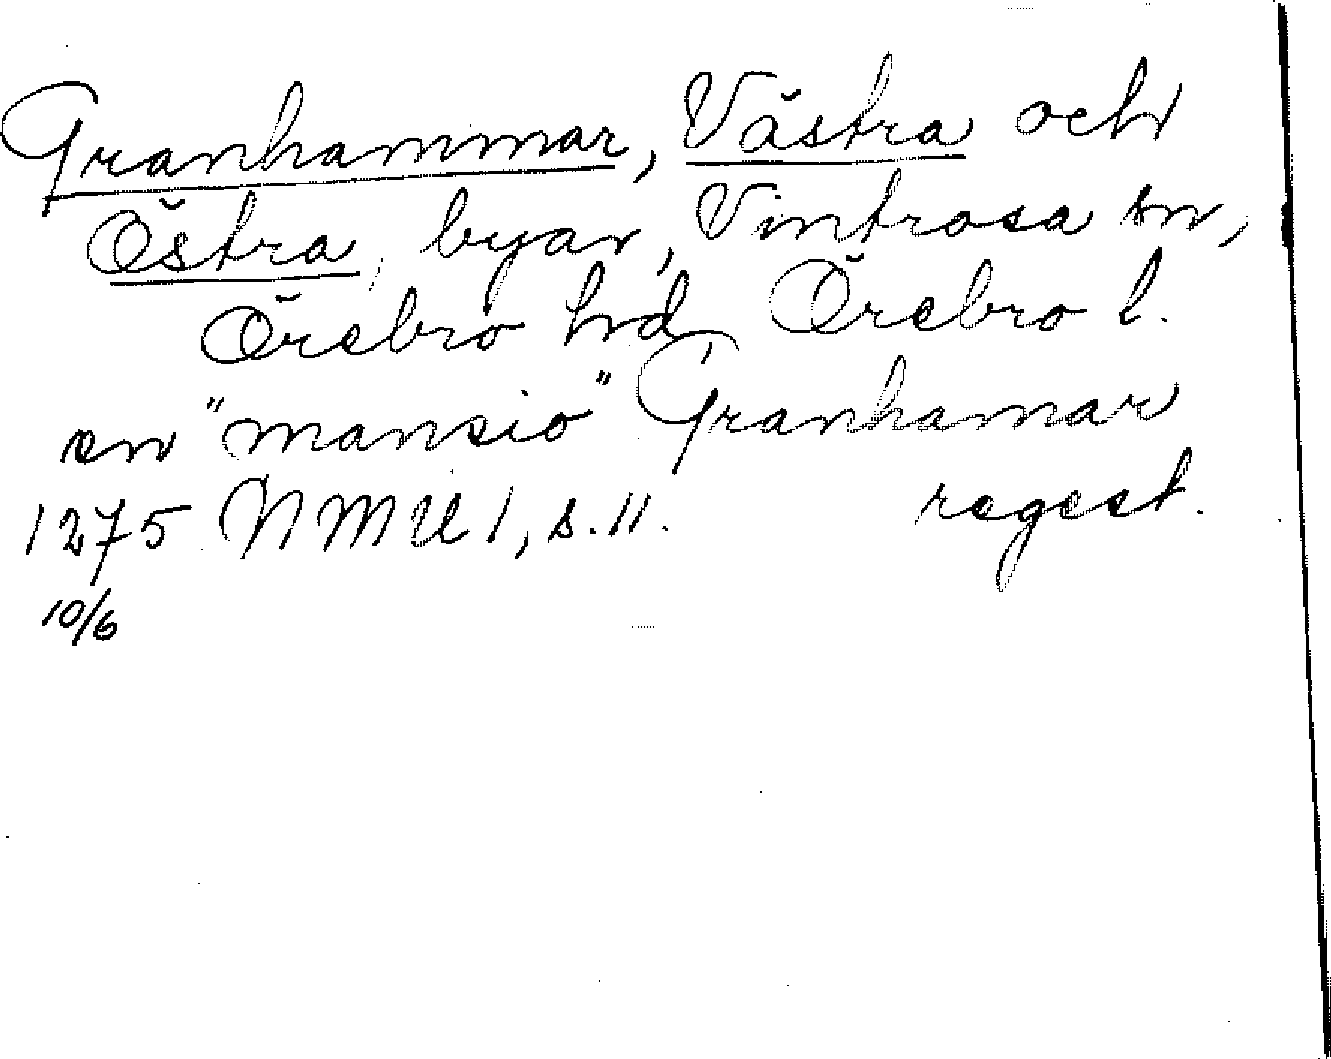 Granhammar, Västra och
Östra, byar, Vintrosa sn,
Örebro hd, Örebro l.
en "mansio" Granhamar
1275 NMU 1, s. 11. regest.
10/6